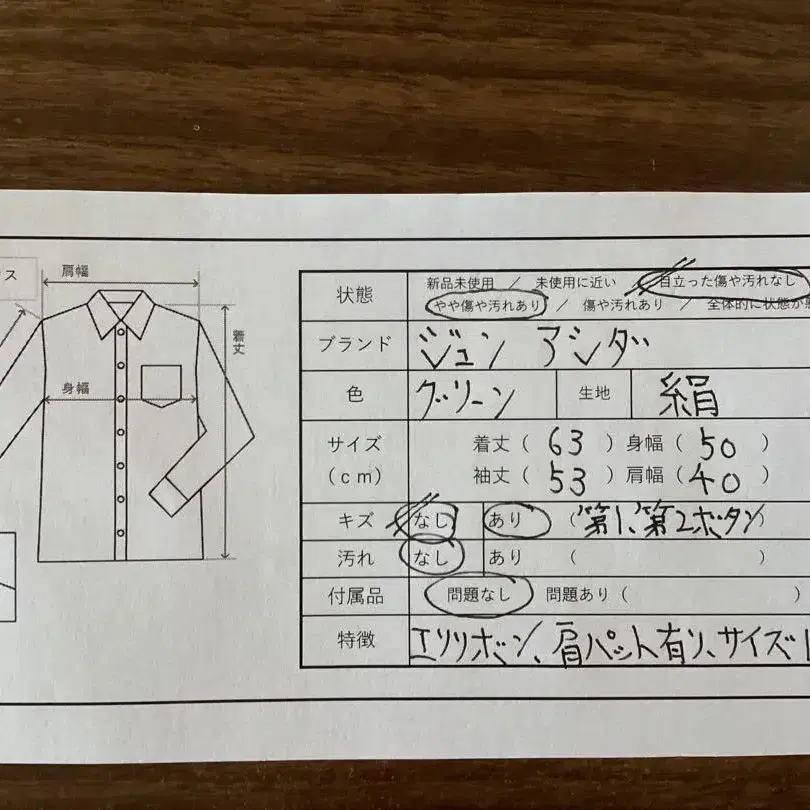 ス
肩幅
着丈
身幅
状態 新品未使用 / 未使用に近い / 目立った傷や汚れなし
やや傷や汚れあり / 傷や汚れあり / 全体的に状態が
ブランド ジュン アシダ
色 グリーン 生地 絹
サイズ(cm) 着丈( 63 ) 身幅( 50 )
袖丈( 53 ) 肩幅( 40 )
キズ なし あり (第1、第2ボタン)
汚れ なし あり ( )
付属品 問題なし 問題あり( )
特徴 エリリボン、肩パット有り、サイズ